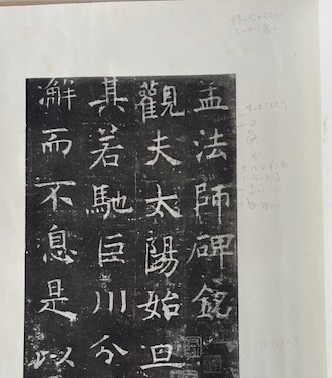 孟法師碑銘
觀夫太陽始旦
其若馳巨川分
澥而不息是以